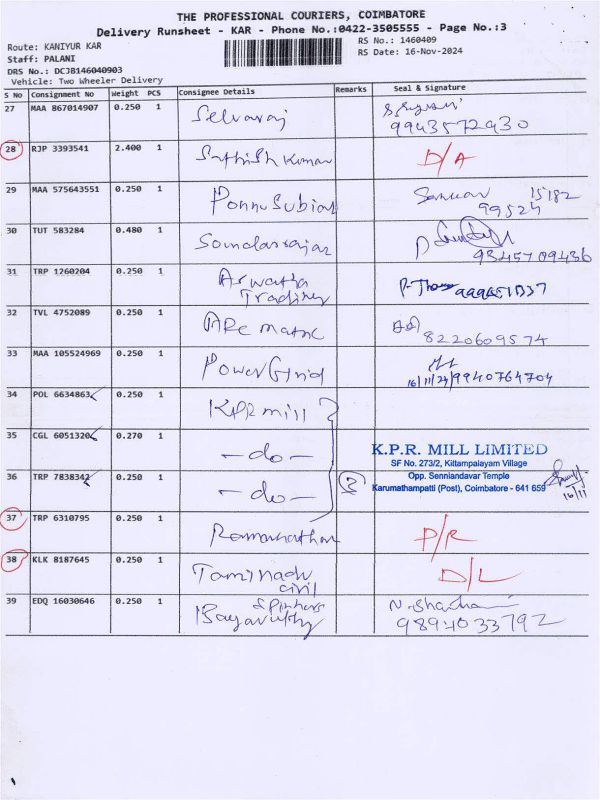 THE PROFESSIONAL COURIERS, COIMBATORE
Delivery Runsheet - KAR - Phone No.:0422-3505555 - Page No.:3
Route: KANIYUR KAR
RS No.: 1460409
Staff: PALANI
RS Date: 16-Nov-2024
DRS No.: DCJB146040903
Vehicle: Two Wheeler Delivery
S No Consignment No Weight PCS Consignee Details Remarks Seal & Signature
27 MAA 867014907 0.250 1 Selvaraj
9943572930
28 RJP 3393541 2.400 1 Sathish Kumar D/A
29 MAA 575643551 0.250 1 Ponnu Subian 15182
99524
30 TUT 583284 0.480 1
9345709436
31 TRP 1260204 0.250 1 Aswatha
Trading
32 TVL 4752089 0.250 1 ARC Matric
8220609574
33 MAA 105524969 0.250 1 Power Grid
16/11/24 9940764704
34 POL 6634863 0.250 1 KPR mill
35 CGL 6051320 0.270 1 -do-
K.P.R. MILL LIMITED
SF No. 273/2, Kittampalayam Village
36 TRP 7838342 0.250 1 -do- 3
Opp. Senniandavar Temple
Karumathapatti (Post), Coimbatore - 641 659
16/11
37 TRP 6310795 0.250 1 Ramanathan P/R
38 KLK 8187645 0.250 1 Tamilnadu
civil D/L
39 EDQ 16030646 0.250 1
9894033792